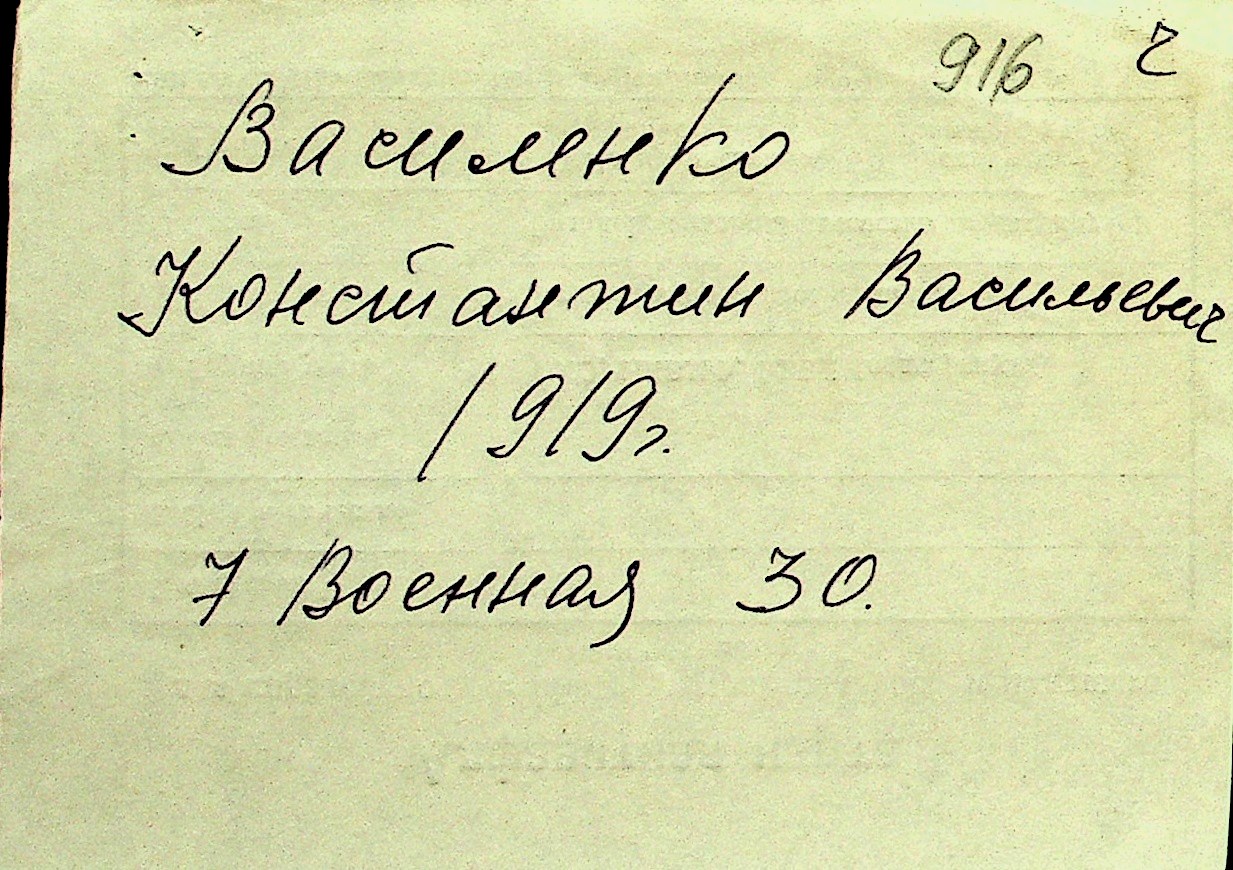 916 ч
Василенко
Константин Васильевич
1919г.
7 Военная 30.